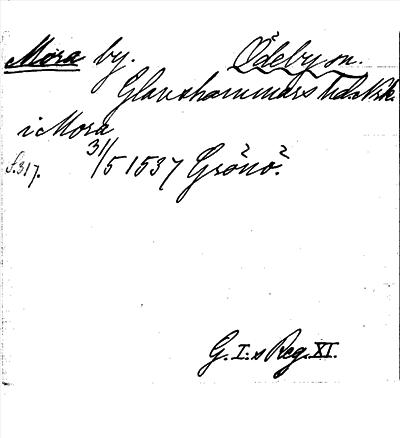 Mora by. Ödeby sn.
Glanshammars hd. Nrk.
i Mora
31/5 1537 Grönö.
s. 317.
G. I:s Reg. XI.